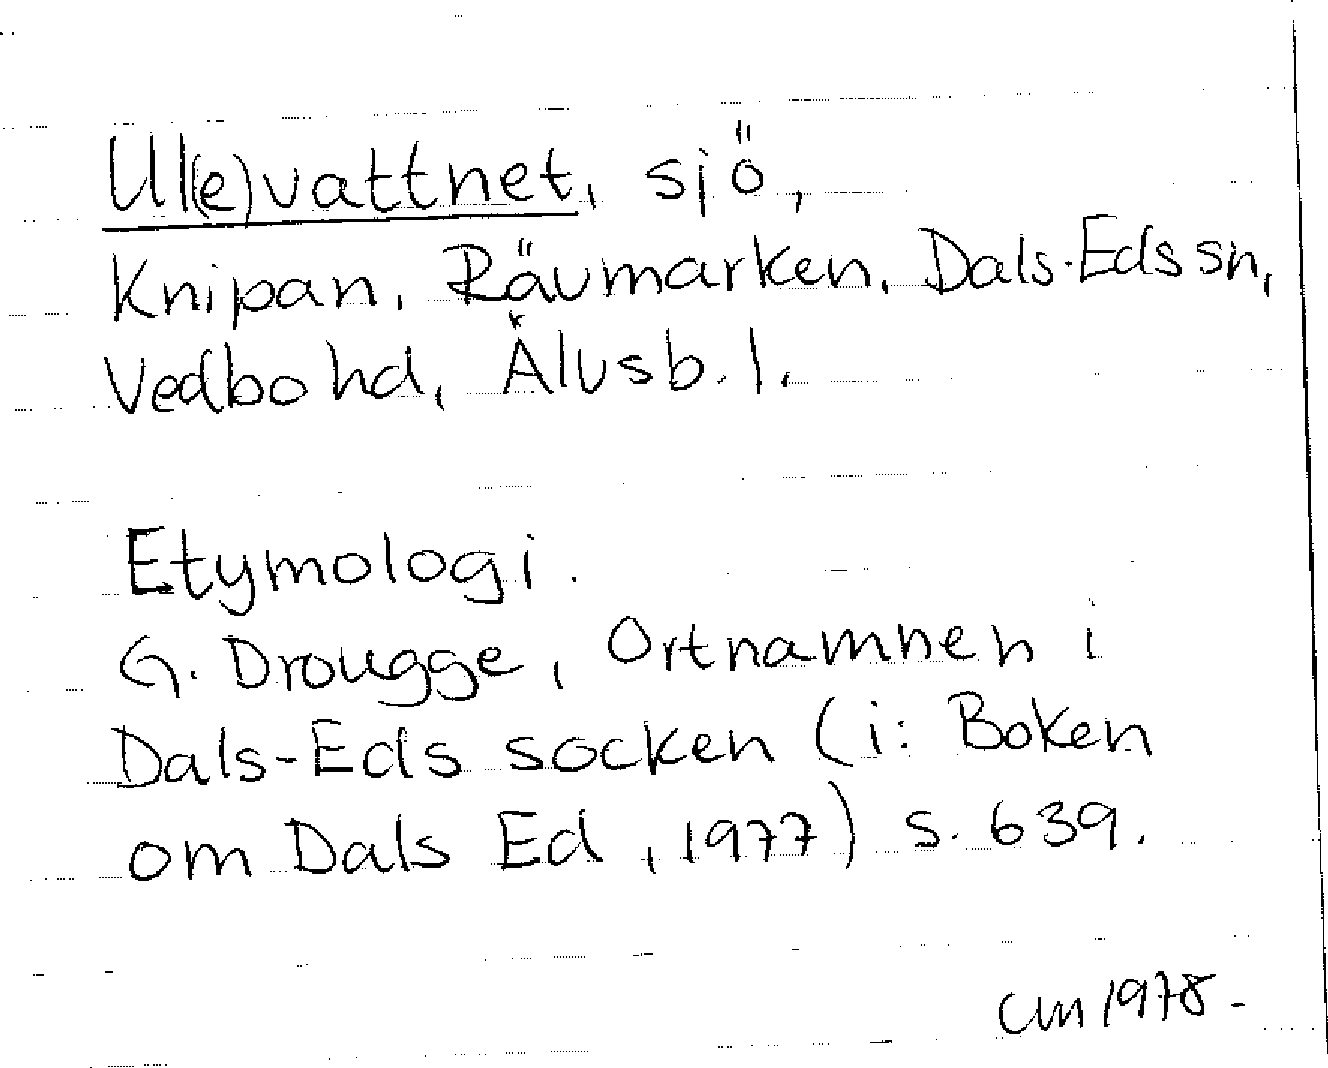 Ul(e)vattnet, sjö,
Knipan, Rävmarken, Dals-Eds sn,
Vedbo hd, Älvsb. l.
Etymologi.
G. Drougge, Ortnamnen i
Dals-Eds socken (i: Boken
om Dals Ed, 1977) s. 639.
CM 1978-